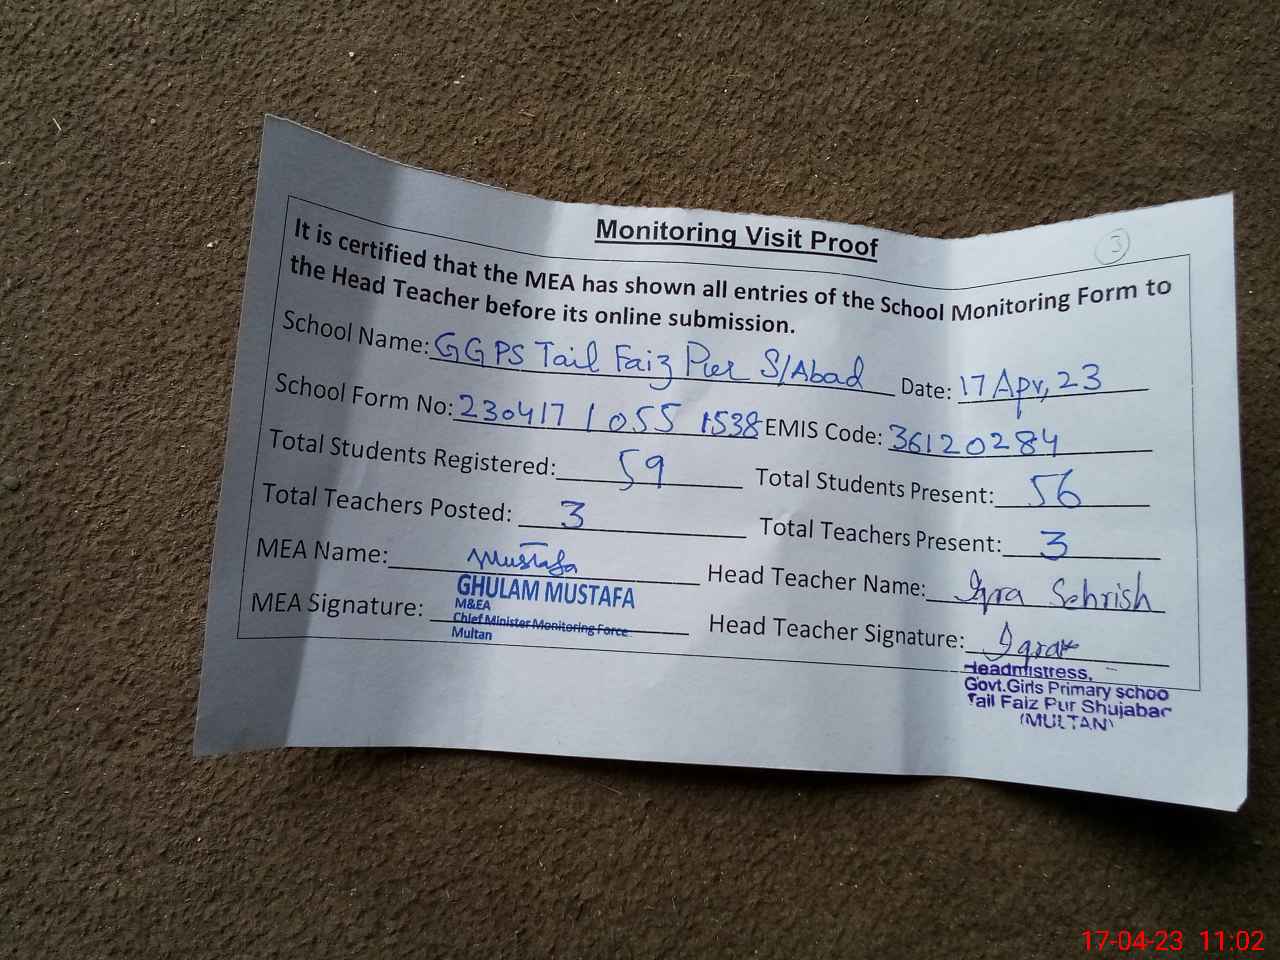 Monitoring Visit Proof
3
It is certified that the MEA has shown all entries of the School Monitoring Form to
the Head Teacher before its online submission.
School Name: GGPS Tail Faiz Pur S/Abad Date: 17 Apr, 23
School Form No: 230417 1055 1538 EMIS Code: 36120284
Total Students Registered: 59 Total Students Present: 56
Total Teachers Posted: 3 Total Teachers Present: 3
MEA Name: Mustafa Head Teacher Name: Iqra Sehrish
MEA Signature: Head Teacher Signature: Iqra
GHULAM MUSTAFA
M&EA
Chief Minister Monitoring Force
Multan
Headmistress,
Govt.Girls Primary schoo
Tail Faiz Pur Shujabad
(MULTAN)
17-04-23 11:02